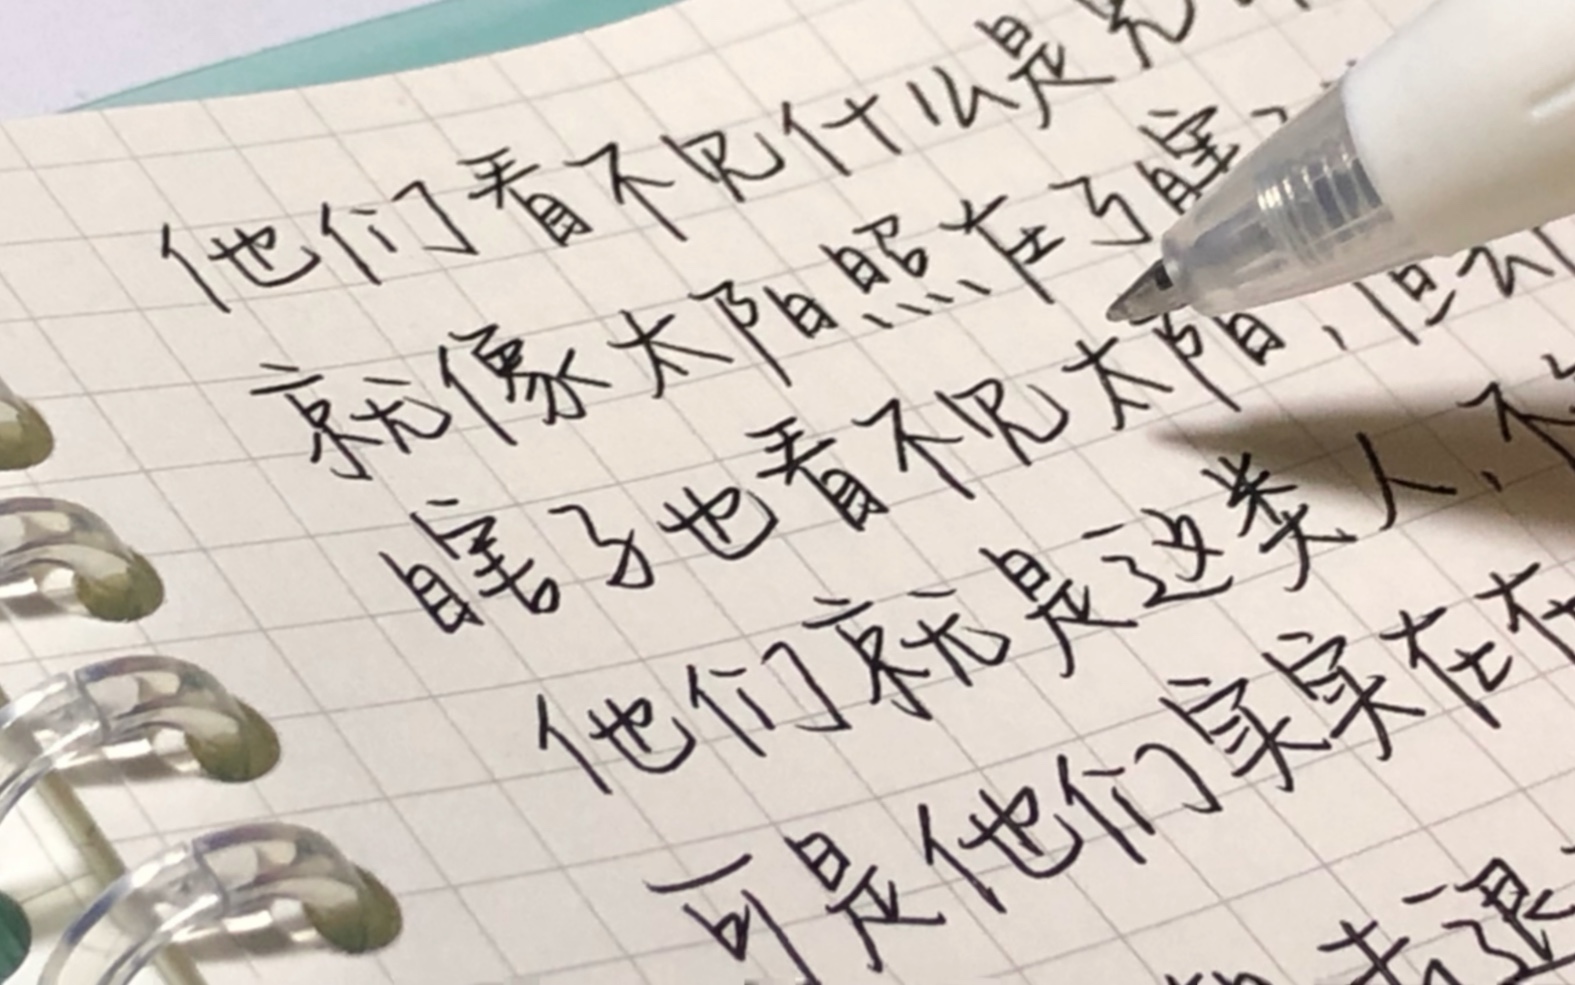 他们看不见什么是光
就像太阳照在了瞎
瞎子也看不见太阳，但
他们就是这类人、不
可是他们实实在在